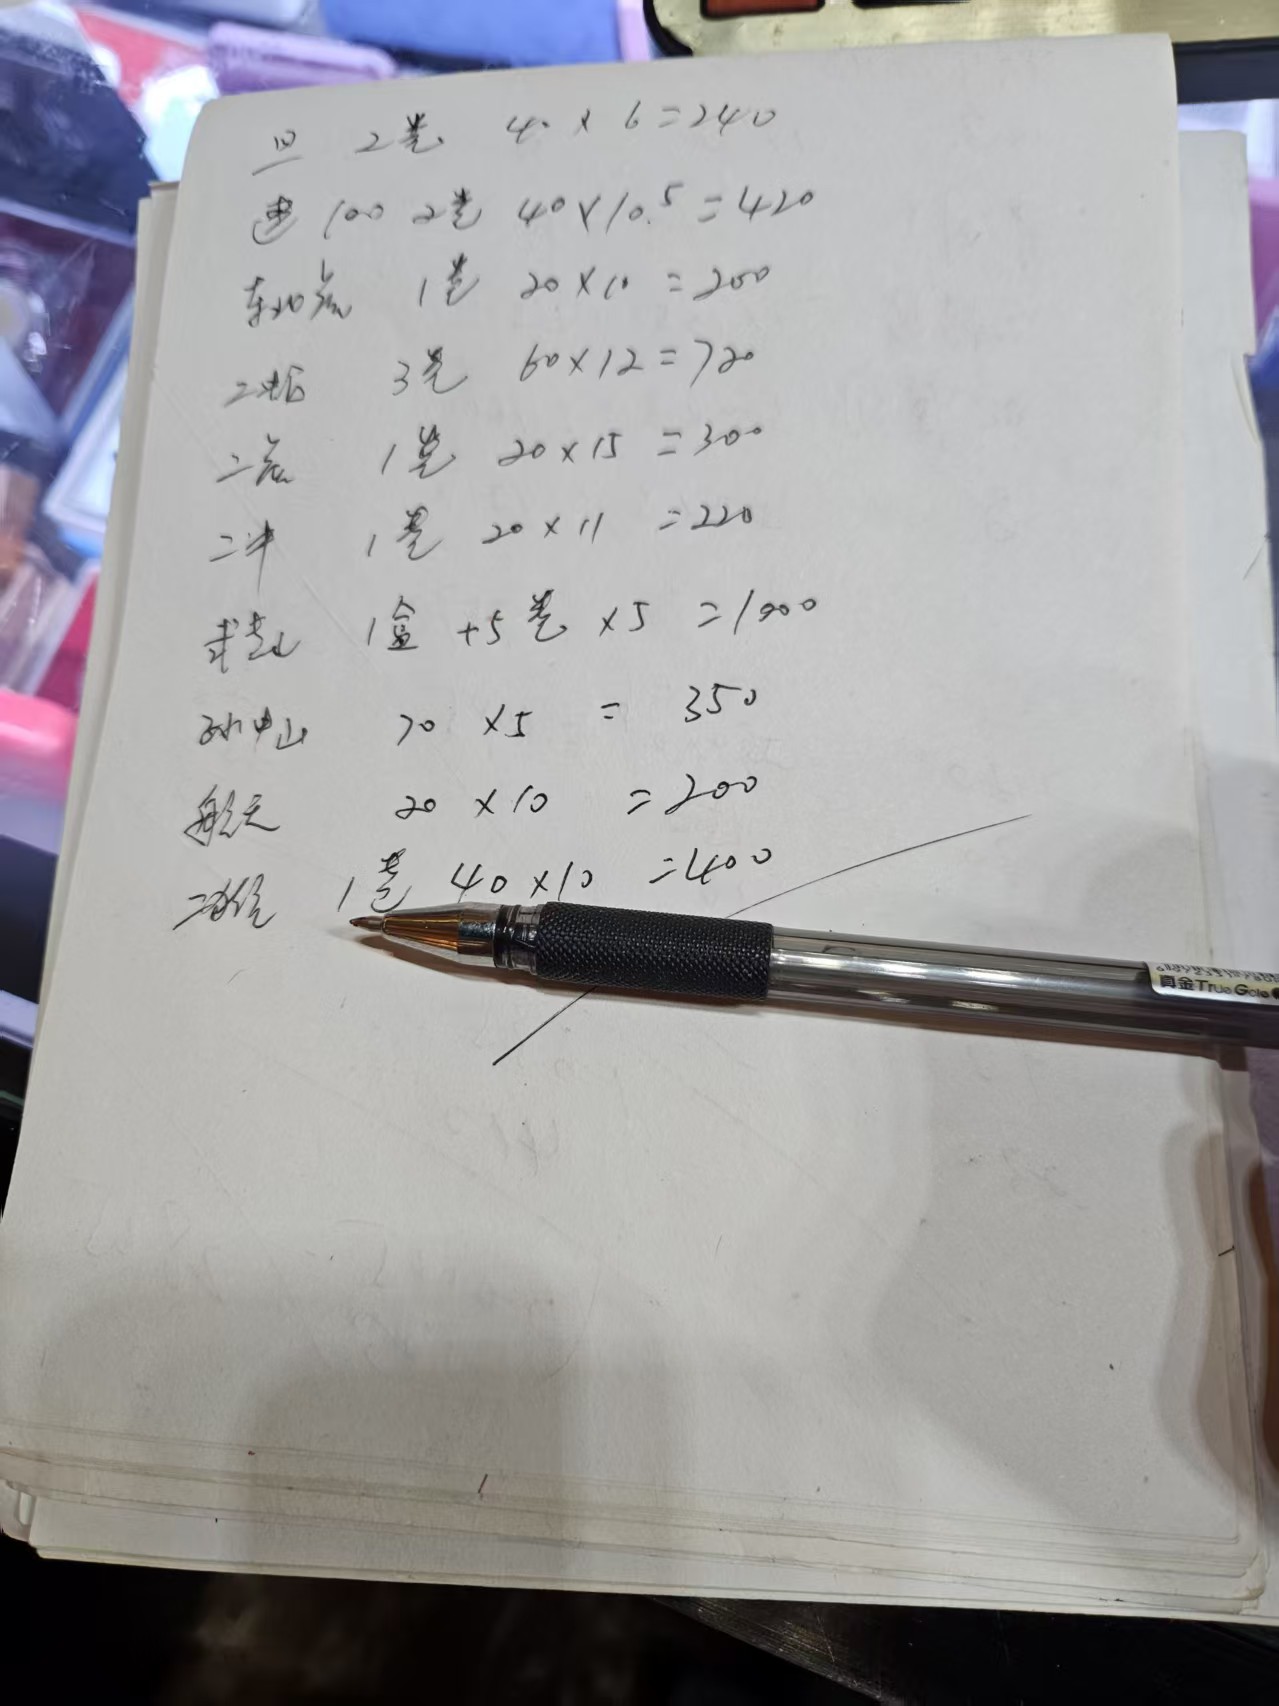 2卷 40 x 6=240
建100 2卷 40x10.5=420
1卷 20x10=200
3卷 60x12=720
二羌 1卷 20x15=300
二牛 1卷 20x11=220
1盒+5卷x5=1000
孙中山 70x5=350
航天 20x10=200
1卷 40x10=400
真金True Gold